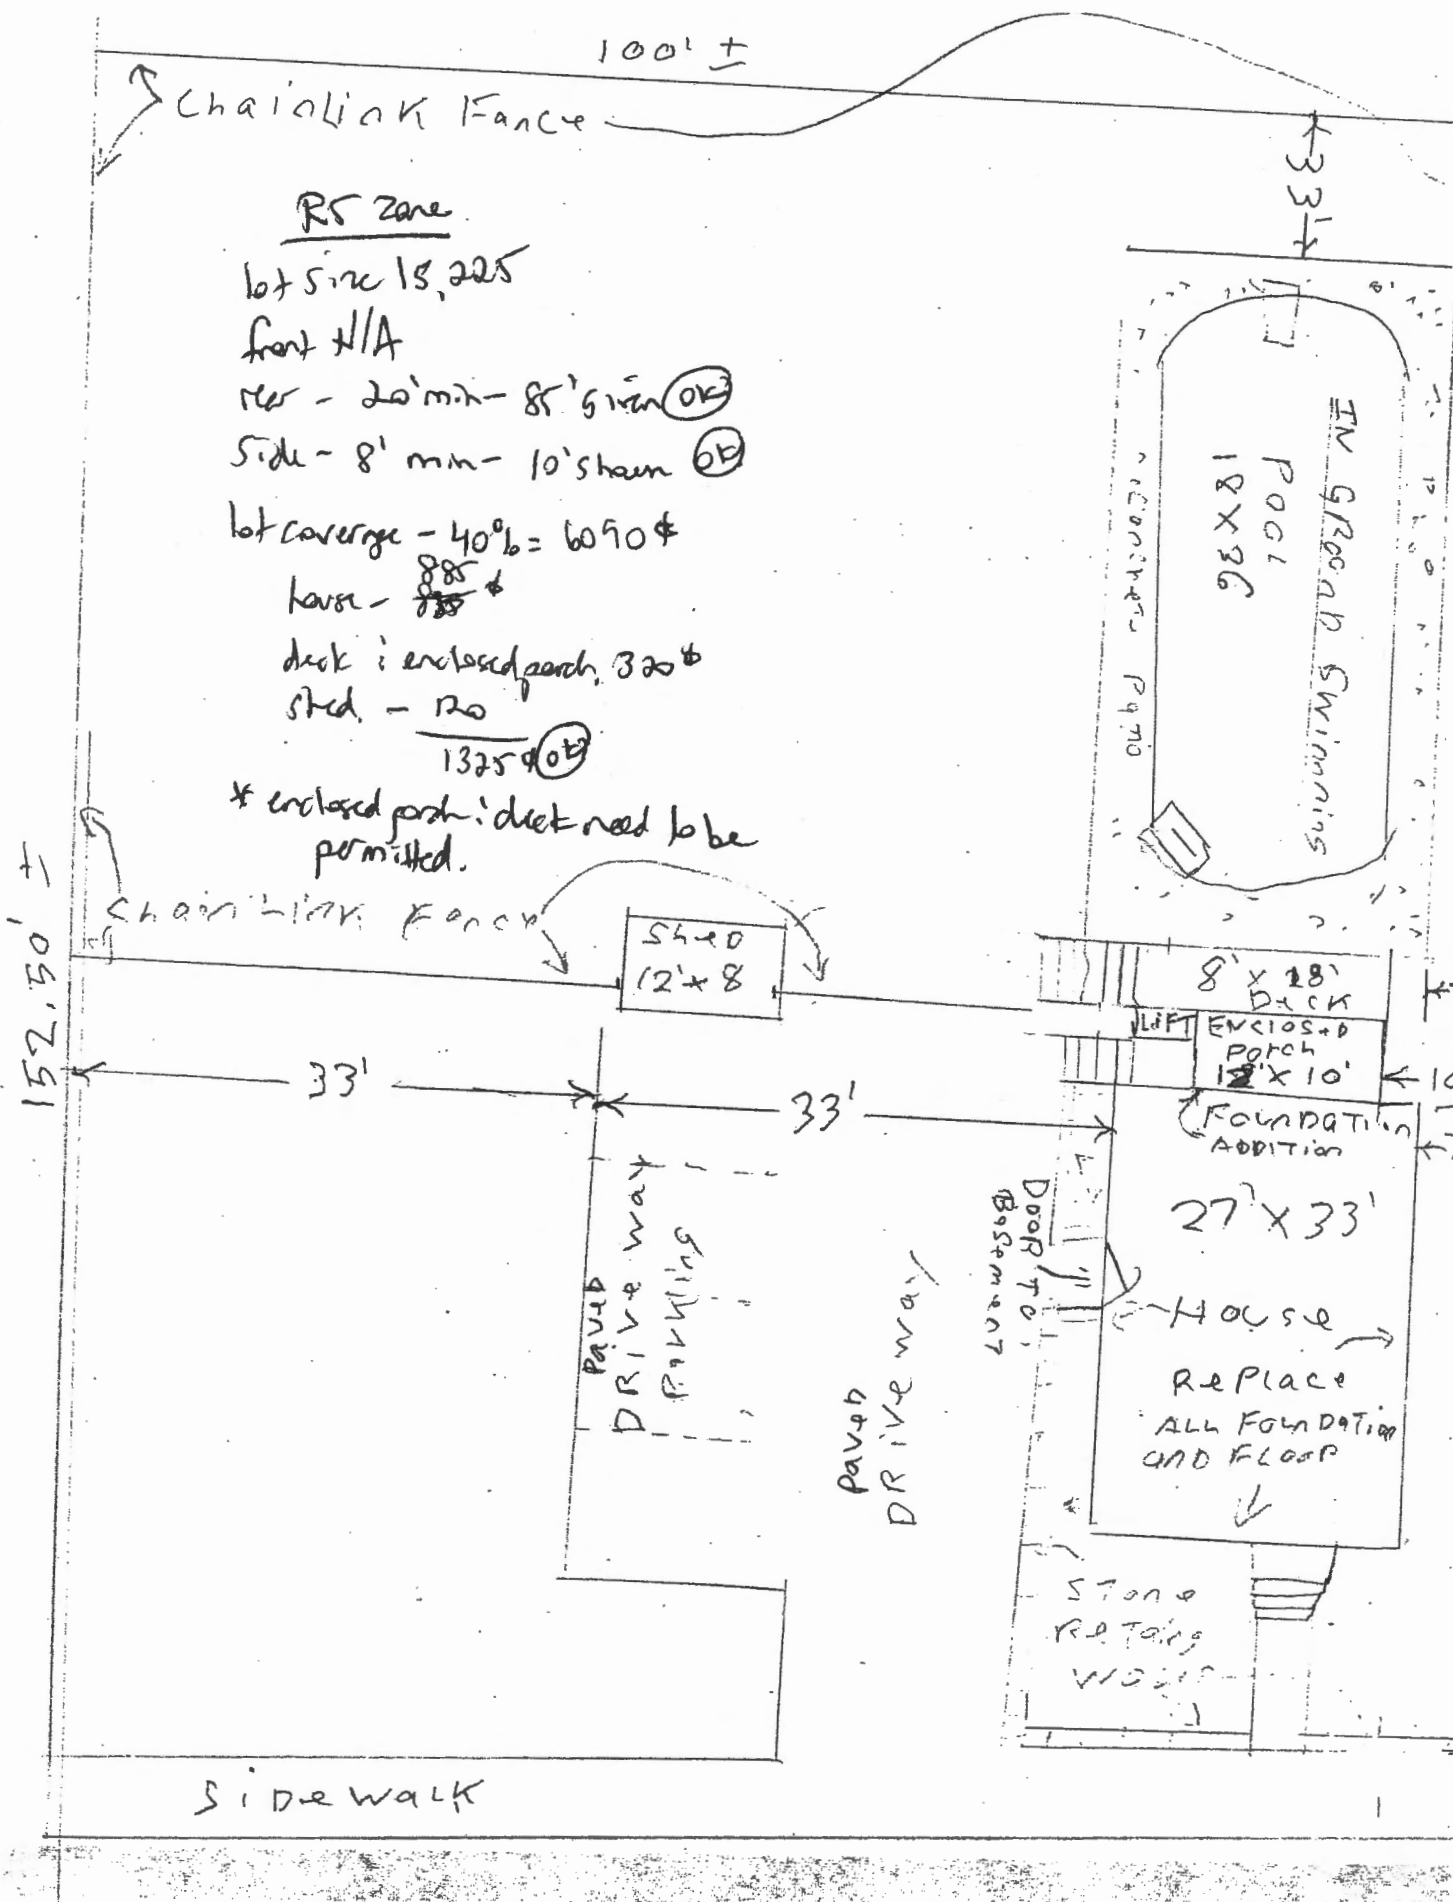 100' ±
Chainlink Fance
R5 Zone
lot size 15,225
front N/A
rear - 20' min - 85' given OK
Side - 8' min - 10' shown OK
lot coverage - 40% = 6090
house - 885
deck & enclosed porch. 320
shed. - 120
1325 OK
* enclosed porch & deck need to be
permitted.
Chain Link Fance
33'
IN GROUND Swimming
POOL
18 X 36
Concrete Patio
152.50' ±
Shed
12' x 8
8' x 18'
Deck
LIFT
ENCLOSED
Porch
X 10'
FOUNDATION
ADDITION
33'
33'
27' X 33'
House
Replace
ALL FOUNDATION
AND FLOOR
DOOR TO
Basement
Paved
DRIVE way
Parking
Paved
DRIVE way
Stone
Retaing
Wall
SIDEWALK